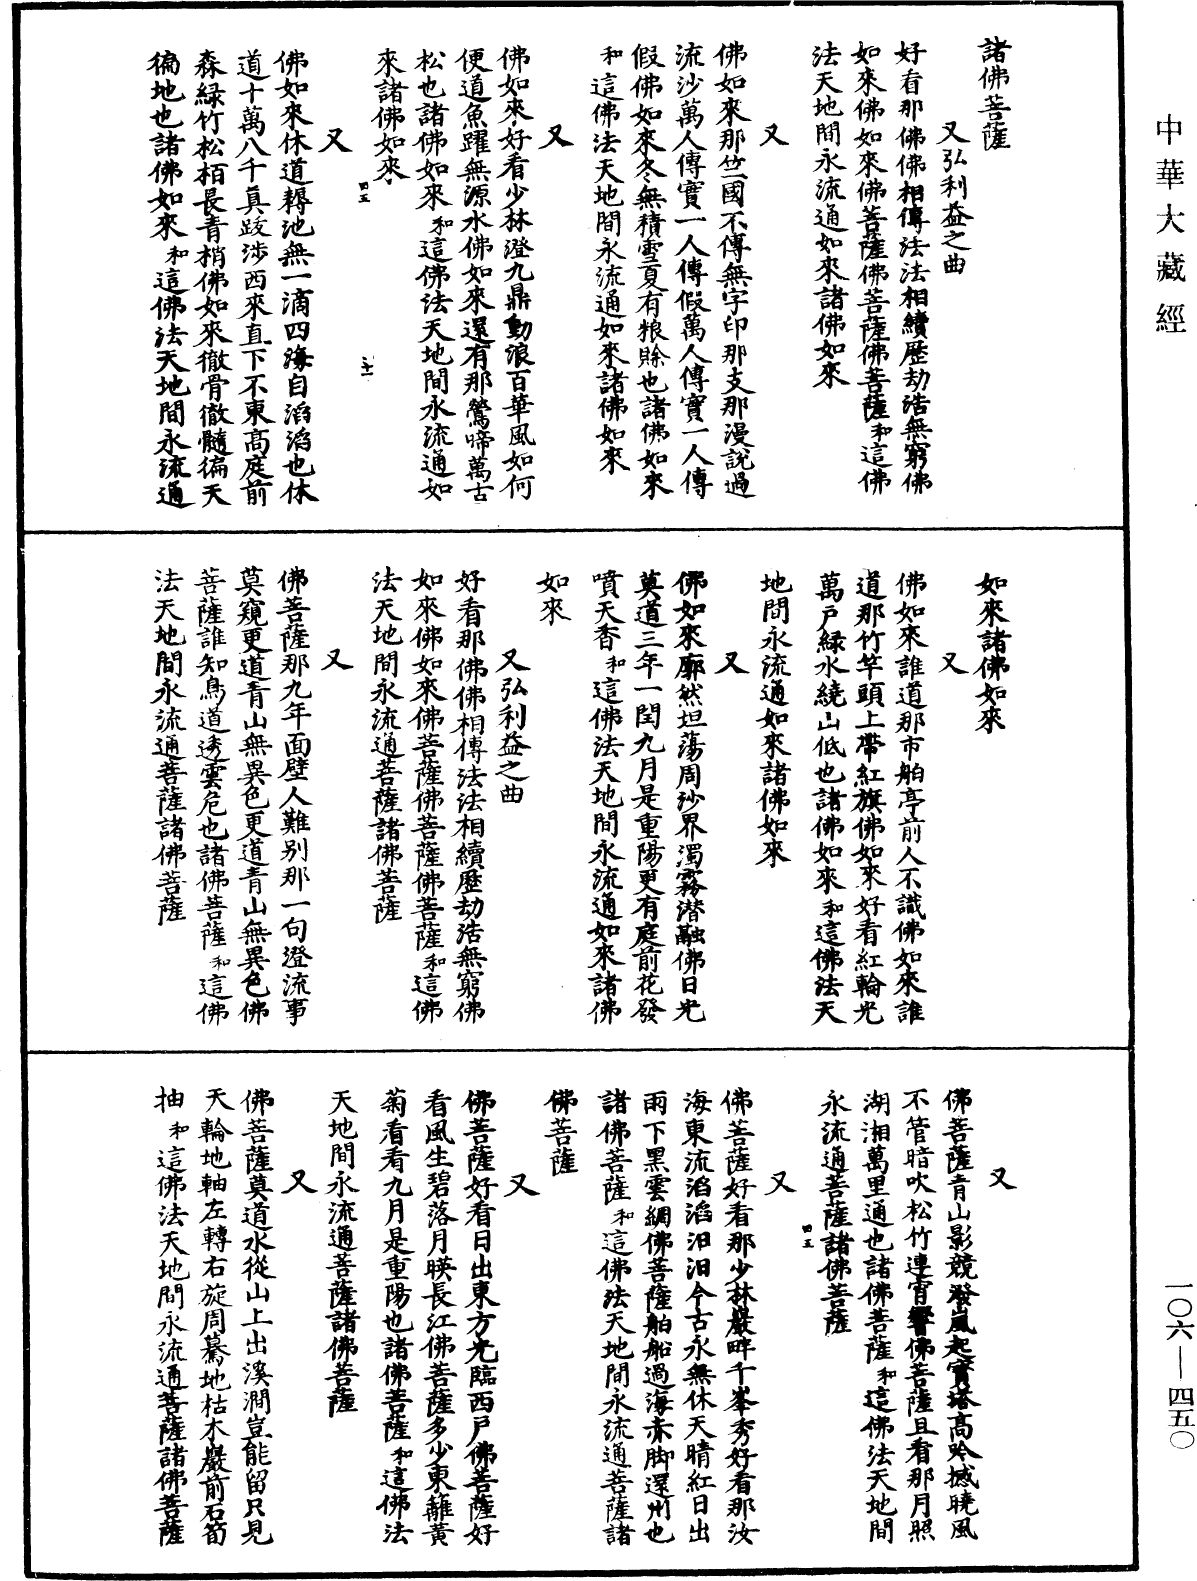 中華大藏經
諸佛菩薩
又弘利益之曲
好看那佛佛相傳法法相續歷劫浩無窮佛
如來佛如來佛菩薩佛菩薩佛菩薩和這佛
法天地間永流通如來諸佛如來
又
佛如來那竺國不傳無字印那支那漫說過
流沙萬人傳實一人傳假萬人傳實一人傳
假佛如來冬無積雪夏有粮賒也諸佛如來
和這佛法天地間永流通如來諸佛如來
又
佛如來好看少林澄九鼎動浪百華風如何
便道魚躍無源水佛如來還有那鶯啼萬古
松也諸佛如來和這佛法天地間永流通如
來諸佛如來
四五
士
又
佛如來休道耨池無一滴四海自滔滔也休
道十萬八千真跋涉西來直下不東高庭前
森綠竹松栢長青梢佛如來徹骨徹髓徧天
徧地也諸佛如來和這佛法天地間永流通
如來諸佛如來
又
佛如來誰道那市舶亭前人不識佛如來誰
道那竹竿頭上帶紅旗佛如來好看紅輪光
萬戶綠水繞山低也諸佛如來和這佛法天
地間永流通如來諸佛如來
又
佛如來廓然坦蕩周沙界濁霧潛融佛日光
莫道三年一閏九月是重陽更有庭前花發
噴天香和這佛法天地間永流通如來諸佛
如來
又弘利益之曲
好看那佛佛相傳法法相續歷劫浩無窮佛
如來佛如來佛菩薩佛菩薩佛菩薩和這佛
法天地間永流通菩薩諸佛菩薩
又
佛菩薩那九年面壁人難別那一句澄流事
莫窺更道青山無異色更道青山無異色佛
菩薩誰知鳥道透雲危也諸佛菩薩和這佛
法天地間永流通菩薩諸佛菩薩
又
佛菩薩青山影競潑嵐起寶塔高吟撼曉風
不管暗吹松竹連宵響佛菩薩且看那月照
湖湘萬里通也諸佛菩薩和這佛法天地間
永流通菩薩諸佛菩薩
四五
又
佛菩薩好看那少林巖畔千峯秀好看那汝
海東流滔滔汩汩今古永無休天晴紅日出
雨下黑雲綢佛菩薩舶船過海赤脚還州也
諸佛菩薩和這佛法天地間永流通菩薩諸
佛菩薩
又
佛菩薩好看日出東方光臨西戶佛菩薩好
看風生碧落月暎長江佛菩薩多少東籬黃
菊看看九月是重陽也諸佛菩薩和這佛法
天地間永流通菩薩諸佛菩薩
又
佛菩薩莫道水從山上出溪澗豈能留只見
天輪地軸左轉右旋周驀地枯木巖前石笋
抽和這佛法天地間永流通菩薩諸佛菩薩
一〇六—四五〇